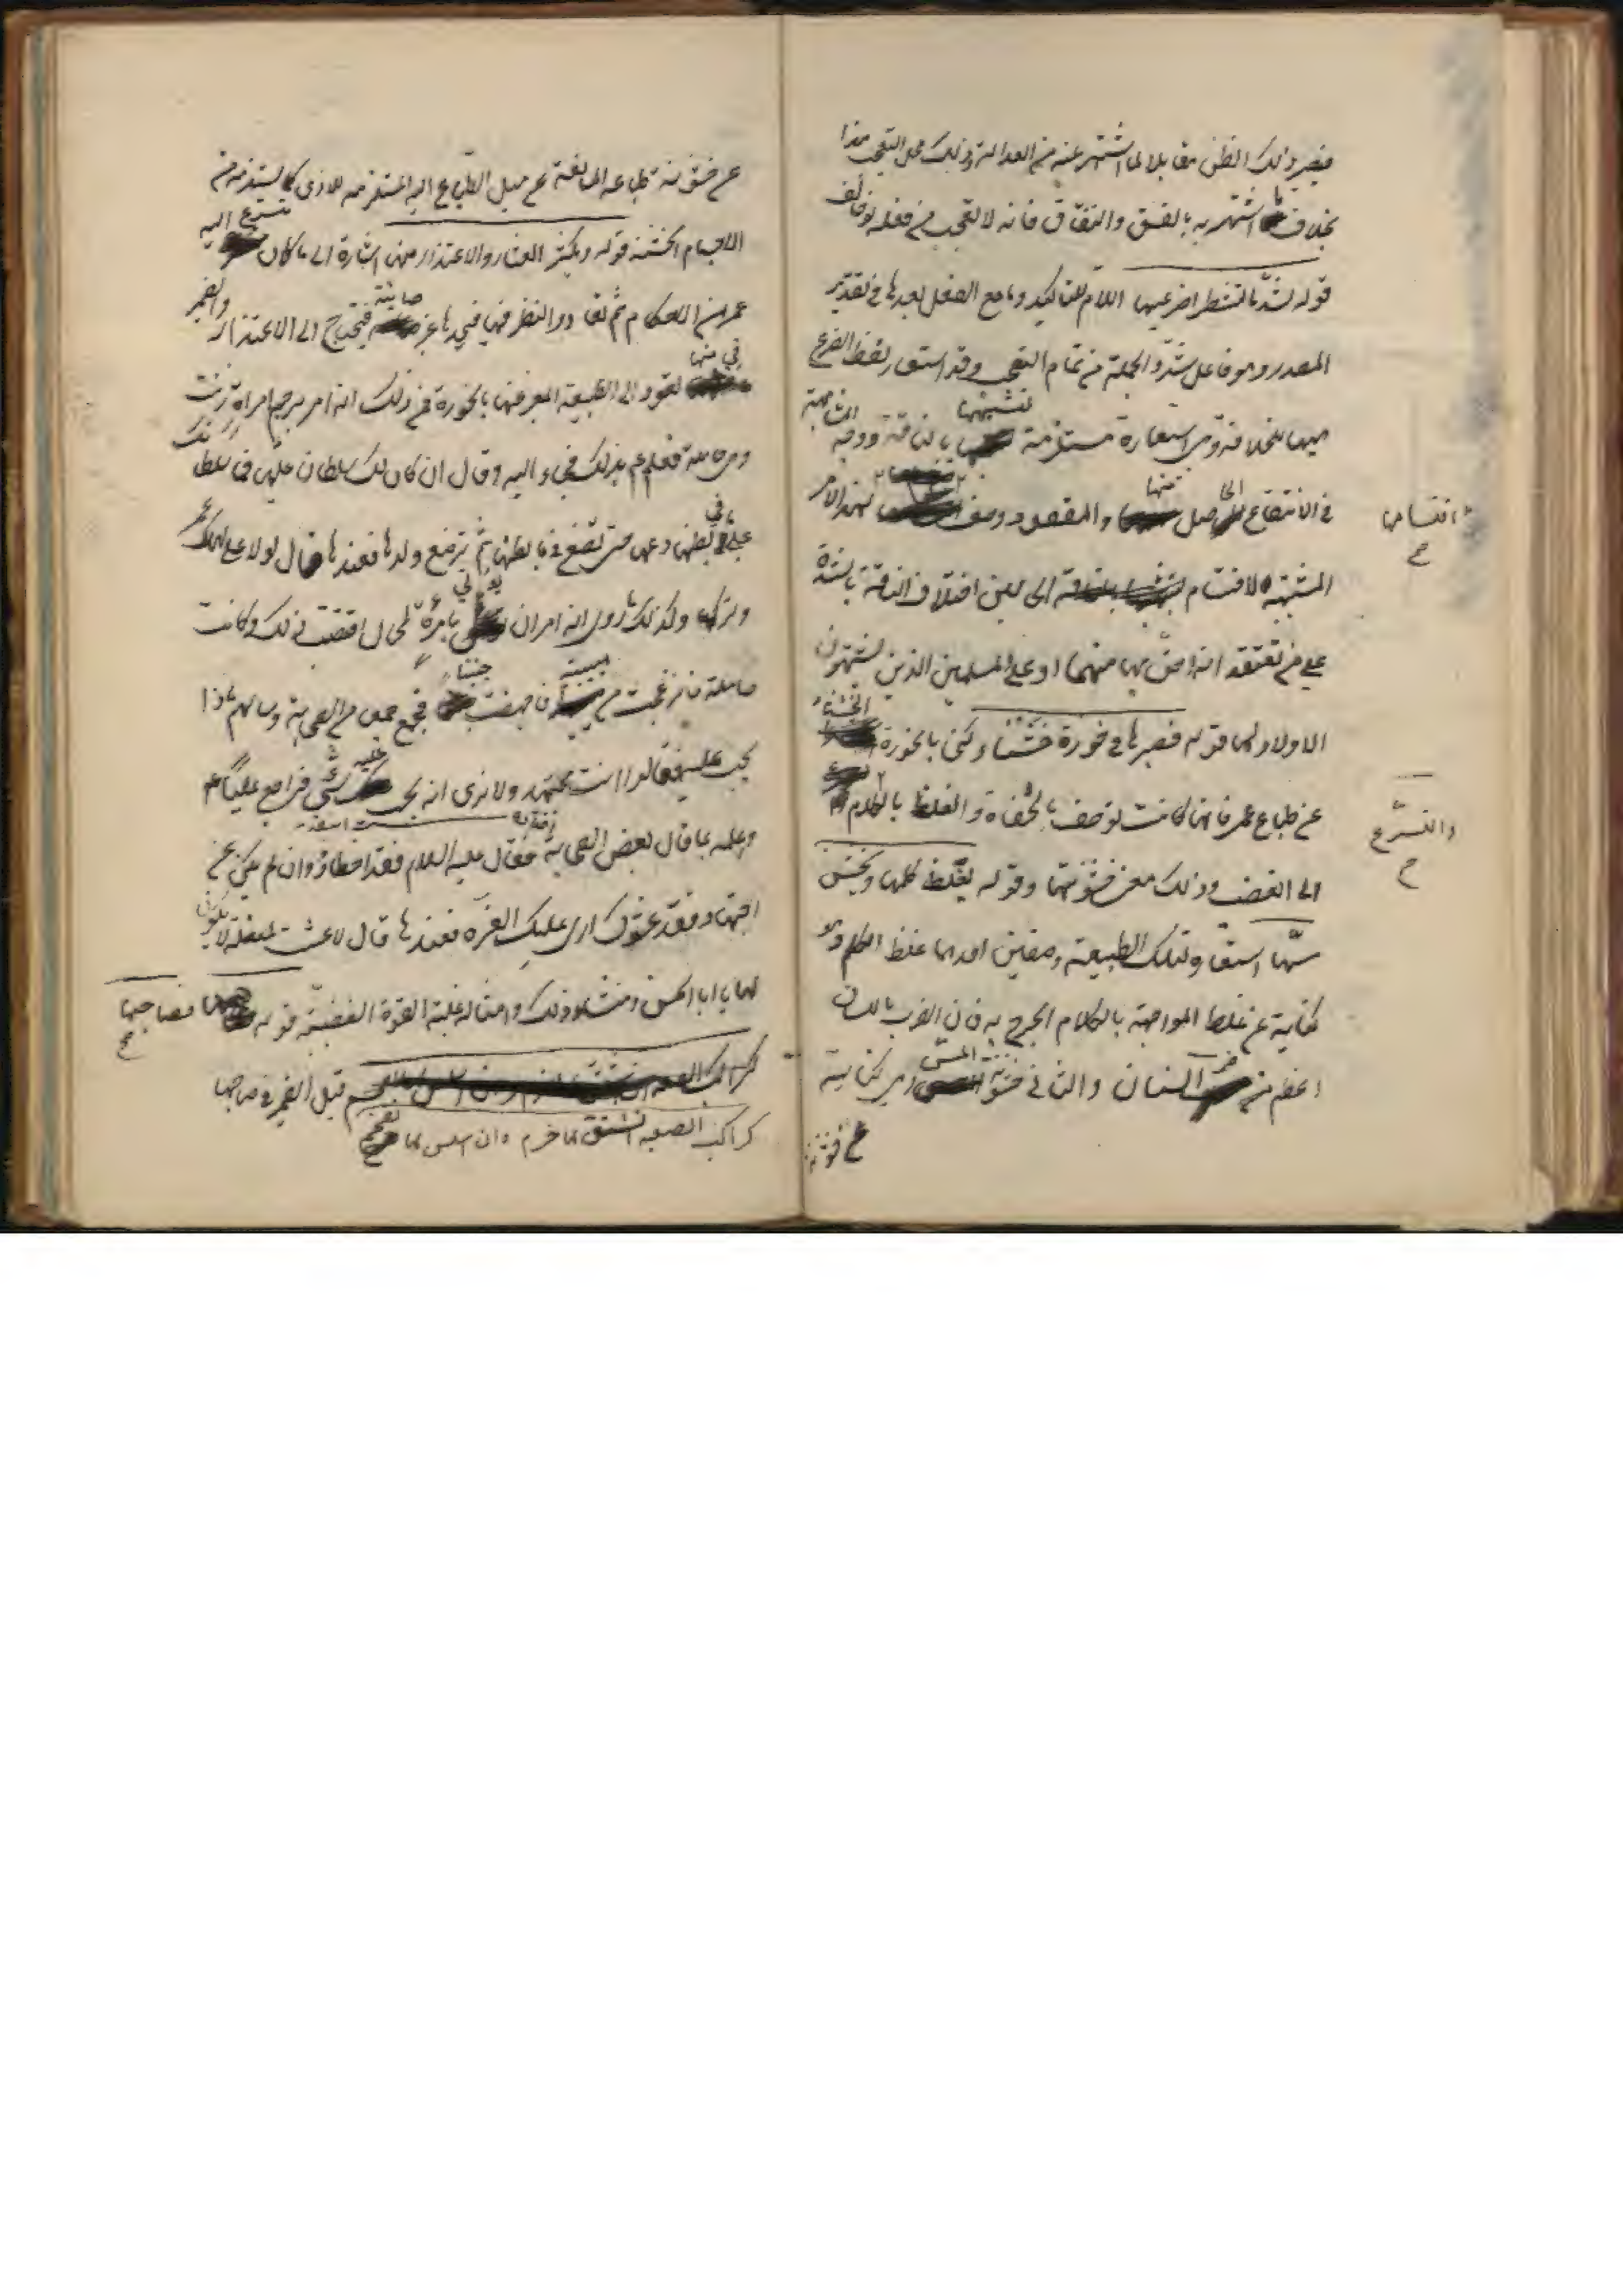 فيصير ذلك الظن مقابلا لما اشتهر عنه من العدالة وذلك محل التعجب هذا
بخلاف ما اشتهر به بالفسق والنفاق فانه لا تعجب من فعله
قوله لشدّ ما تشطرا ضرعيها اللام للتاكيد وما مع الفعل بعدها في تقدير
المصدر وهو فاعل شدّ والجملة من تمام التعجب وقد استعار لفظ الضرع
هيهنا للخلافة وهى استعارة مستلزمة لتشبيهها بالناقة ووجه المشابهة
في الانتفاع الحاصل منها والمقصود وصف اقتسامهما لهذا الامر
المشبهة لاقتسام اخلاف الناقة بالشدة
على من يعتقد انه احق بها منهما او على المسلمين الذين يشبهون
الاولاد لها قوله فصيرها في حوزة خشناء وكنى بالحوزة الخشناء
عن طباع عمر فانها كانت توصف بالجفاوة والغلظ بالكلام والتسرع
الى الغضب وذلك معنى خشونتها وقوله يغلظ كلمها ويخشن
مسّها استعار لتلك الطبيعة وصفين احدهما غلظ الكلم وهو
كناية عن غلظ المواجهة بالكلام الجرح به فان الضرب باللسان
اعظم من السنان والثاني خشونة المسّ وهى كناية
عن خشونة
عن خشونة طباعه المانعة عن ميل الطباع اليه المستلزمة للاذى كما يستلزمه من
الاجسام الخشنة قوله ويكثر العثار والاعتذار منها اشارة الى ما كان يتسرع اليه
عمر من الاحكام ثم يعاود النظر فيها فيجدها غير صائبة فيحتاج الى الاعتذار والضمير
في منها يعود الى الطبيعة المعبر عنها بالحوزة فمن ذلك انه امر برجم امراة زنت
وهى حاملة فعلم ع بذلك فجاء اليه وقال ان كان لك سلطان عليها فما سلطانك
على ما في بطنها دعها حتى تضع ما في بطنها ثم ترضع ولدها فعندها قال لولا على لهلك عمر
وتركها وكذلك ما روى انه امر ان يؤتى بامرأة لحال اقتضت ذلك وكانت
حاملة فانزعجت من هيبته فاجهضت جنينا فجمع جمعا من الصحابة وسالهم ماذا
يجب عليه فقالوا انت مجتهد ولا نرى انه يجب عليك شئ فراجع عليا ع
واعلمه بما قال بعض الصحابة فقال عليه السلام فقد اخطاوا وان لم يكن عن
اجتهاد فقد غشوك ارى عليك الغرة فعندها قال لا عشت لمعضلة لا تكون
لها يا ابا الحسن ومنشاء ذلك وامثاله غلبة القوة الغضبية قوله فصاحبها
قيل الضمير في صاحبها
كراكب الصعبة ان اشنق لها خرم وان اسلس لها تقحم
اقتسامهما
والتسرع
صح